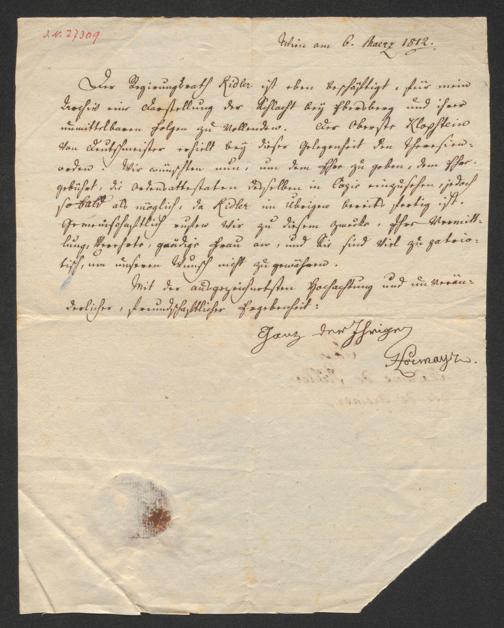 J.N. 27309
Wien am 6. Maerz 1812.
Der Regierungsrath Ridler ist eben beschäftigt, für mein
Archiv eine Darstellung der Schlacht bey Ebersberg und ihrer
unmittelbaren Folgen zu vollenden. Der Oberste Klopstein
von Deutschmeister erhielt bey dieser Gelegenheit den Theresien-
orden. Wir wünschten nun, um dem Ehre zu geben, dem Ehre
gebührt, die Ordensattestaten desselben in Copie einzusehen, jedoch
so bald als möglich, da Ridler im Übrigen bereits fertig ist.
Gemeinschaftlich rufen wir zu diesem Zwecke, Ihre Vermitt-
lung, Verehrte, gnädige Frau an, und Sie sind viel zu patrio-
tisch, um unseren Wunsch nicht zu gewähren.
Mit der ausgezeichnetsten Hochachtung und unverän-
derlicher, freundschaftlicher Ergebenheit:
Ganz der Ihrige
Hormayr.